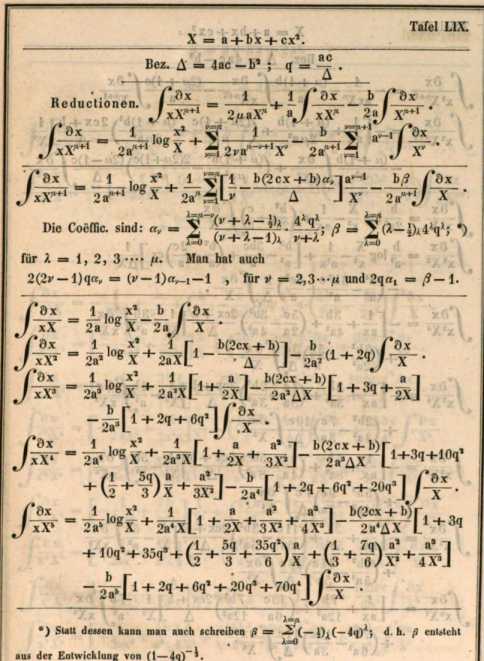 Tafel LIX.
X = a + bx + cx².
Bez. Δ = 4ac − b² ; q = ac/Δ .
Reductionen. ∫ ∂x/(xX^(μ+1)) = 1/(2μaX^μ) + 1/a ∫ ∂x/(xX^μ) − b/(2a) ∫ ∂x/X^(μ+1) .
∫ ∂x/(xX^(μ+1)) = 1/(2a^(μ+1)) log x²/X + Σ_(ν=1)^(ν=μ) 1/(2νa^(μ−ν+1)X^ν) − b/(2a^(μ+1)) Σ_(ν=1)^(ν=μ+1) a^(ν−1) ∫ ∂x/X^ν .
∫ ∂x/(xX^(μ+1)) = 1/(2a^(μ+1)) log x²/X + 1/(2a^μ) Σ_(ν=1)^(ν=μ) [1/ν − b(2cx + b)α_ν/Δ] a^(ν−1)/X^ν − bβ/(2a^(μ+1)) ∫ ∂x/X .
Die Coëffic. sind: α_ν = Σ_(λ=0)^(λ=μ−ν) (ν + λ − ½)_λ/(ν + λ − 1)_λ · 4^λ q^λ/(ν + λ) ; β = Σ_(λ=0)^(λ=μ) (λ − ½)_λ 4^λ q^λ ; *)
für λ = 1, 2, 3 ···· μ. Man hat auch
2(2ν − 1)qα_ν = (ν − 1)α_(ν−1) − 1 , für ν = 2,3 ··· μ und 2qα₁ = β − 1.
∫ ∂x/(xX) = 1/(2a) log x²/X − b/(2a) ∫ ∂x/X .
∫ ∂x/(xX²) = 1/(2a²) log x²/X + 1/(2aX) [1 − b(2cx + b)/Δ] − b/(2a²) (1 + 2q) ∫ ∂x/X .
∫ ∂x/(xX³) = 1/(2a³) log x²/X + 1/(2a²X) [1 + a/(2X)] − b(2cx + b)/(2a²ΔX) [1 + 3q + a/(2X)]
− b/(2a³) [1 + 2q + 6q²] ∫ ∂x/X .
∫ ∂x/(xX⁴) = 1/(2a⁴) log x²/X + 1/(2a³X) [1 + a/(2X) + a²/(3X²)] − b(2cx + b)/(2a³ΔX) [1 + 3q + 10q²
+ (1/2 + 5q/3) a/X + a²/(3X²)] − b/(2a⁴) [1 + 2q + 6q² + 20q³] ∫ ∂x/X .
∫ ∂x/(xX⁵) = 1/(2a⁵) log x²/X + 1/(2a⁴X) [1 + a/(2X) + a²/(3X²) + a³/(4X³)] − b(2cx + b)/(2a⁴ΔX) [1 + 3q
+ 10q² + 35q³ + (1/2 + 5q/3 + 35q²/6) a/X + (1/3 + 7q/6) a²/X² + a³/(4X³)]
− b/(2a⁵) [1 + 2q + 6q² + 20q³ + 70q⁴] ∫ ∂x/X .
*) Statt dessen kann man auch schreiben β = Σ_(λ=0)^(λ=μ) (−½)_λ (−4q)^λ ; d. h. β entsteht
aus der Entwicklung von (1 − 4q)^(−½).